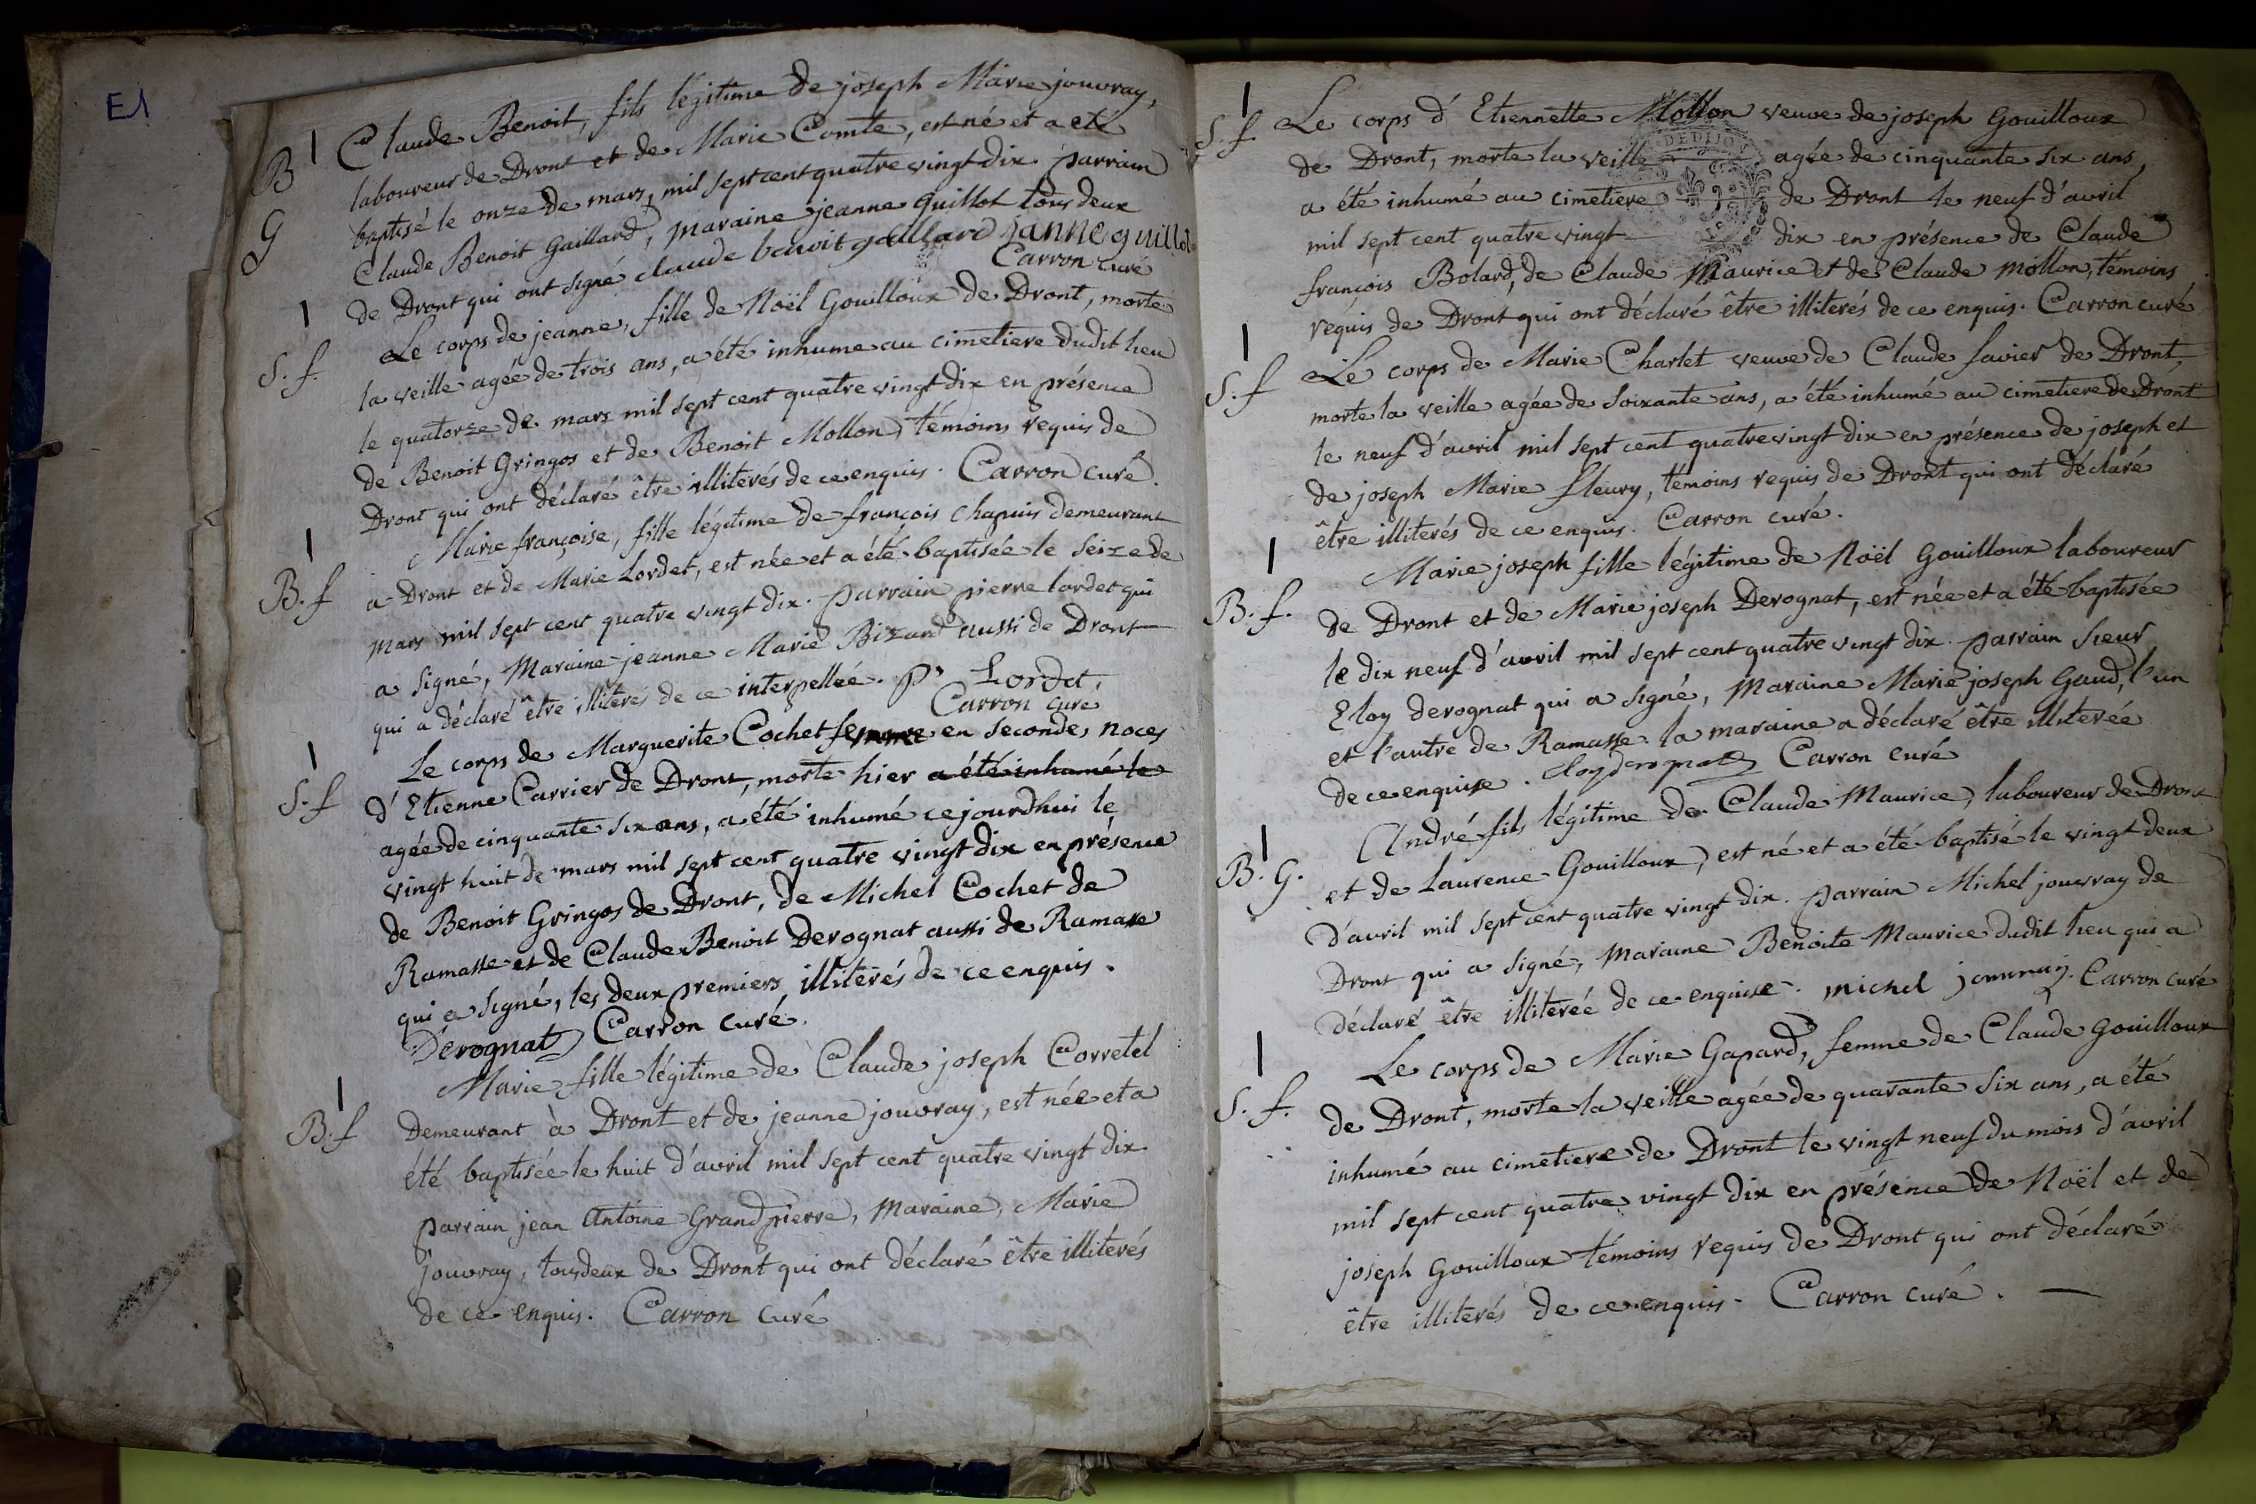 E1
Claude Benoit, fils légitime de joseph Marie jouvray,
B
G
laboureur de Dront et de Marie Comte, est né et a eté
baptisé le onze de mars, mil sept cent quatre vingt dix. parrain
Claude Benoit Gaillard, maraine jeanne Guillot tous deux
de Dront qui ont signé claude benoit gaillard janne guillot
Carron curé
Le corps de jeanne, fille de Noël Gouilloux de Dront, morte
S. f.
la veille agée de trois ans, a été inhumé au cimetiere dudit lieu
le quatorze de mars mil sept cent quatre vingt dix en présence
de Benoit Gringos et de Benoit Mollon, témoins requis de
Dront qui ont déclaré être illiterés de ce enquis. Carron curé.
Marie françoise, fille légitime de françois Chapuis demeurant
B. f
à Dront et de Marie Lordet, est née et a été baptisée le seize de
mars mil sept cent quatre vingt dix. parrain pierre lordet qui
a signé, maraine jeanne Marie Bizard aussi de Dront
qui a déclaré être illiterés de ce interpellée. P. Lordet,
Carron curé
Le corps de Marguerite Cochet femme en secondes noces
S. f
d'Etienne Carrier de Dront, morte hier a été inhumé le
agée de cinquante six ans, a été inhumé cejourdhui le
vingt huit de mars mil sept cent quatre vingt dix en présence
de Benoit Gringos de Dront, de Michel Cochet de
Ramasse et de Claude Benoit Derognat aussi de Ramasse
qui a signé, les deux premiers illiterés de ce enquis.
Derognat Carron curé.
Marie fille légitime de Claude joseph Corretel
B. f
demeurant à Dront et de jeanne jouvray, est née et a
été baptisée le huit d'avril mil sept cent quatre vingt dix
parrain jean Antoine Grandpierre, maraine, Marie
jouvray, tous deux de Dront qui ont déclaré être illiterés
de ce enquis. Carron curé
Le corps d'Etiennette Mollon veuve de joseph Gouilloux
S. f.
de Dront, morte la veille agée de cinquante six ans,
a été inhumé au cimetiere de Dront le neuf d'avril
mil sept cent quatre vingt dix en présence de Claude
françois Bolard, de Claude Maurice et de Claude Mollon, témoins
requis de Dront qui ont déclaré être illiterés de ce enquis. Carron curé
Le corps de Marie Charlet veuve de Claude favier de Dront,
S. f
morte la veille agée de soixante ans, a été inhumé au cimetiere de Dront
le neuf d'avril mil sept cent quatre vingt dix en présence de joseph et
de joseph Marie fleury, témoins requis de Dront qui ont déclaré
être illiterés de ce enquis. Carron curé.
Marie joseph fille légitime de Noël Gouilloux laboureur
B. f.
de Dront et de Marie joseph Derognat, est née et a été baptisée
le dix neuf d'avril mil sept cent quatre vingt dix. parrain sieur
Eloy derognat qui a signé, maraine Marie joseph Gaud, l'un
et l'autre de Ramasse. la maraine a déclaré être illiterée
de ce enquise. Eloy derognat Carron curé
André fils légitime de Claude Maurice, laboureur de Dront
B. G.
et de Laurence Gouilloux, est né et a été baptisé le vingt deux
d'avril mil sept cent quatre vingt dix. parrain Michel jouvray de
Dront qui a signé, maraine Benoite Maurice dudit lieu qui a
déclaré être illiterée de ce enquise. michel jouvray. Carron curé
Le corps de Marie Gapard, femme de Claude Gouilloux
S. f.
de Dront, morte la veille agée de quarante six ans, a été
inhumé au cimetiere de Dront le vingt neuf du mois d'avril
mil sept cent quatre vingt dix en présence de Noël et de
joseph Gouilloux témoins requis de Dront qui ont déclaré
être illiterés de ce enquis. Carron curé.